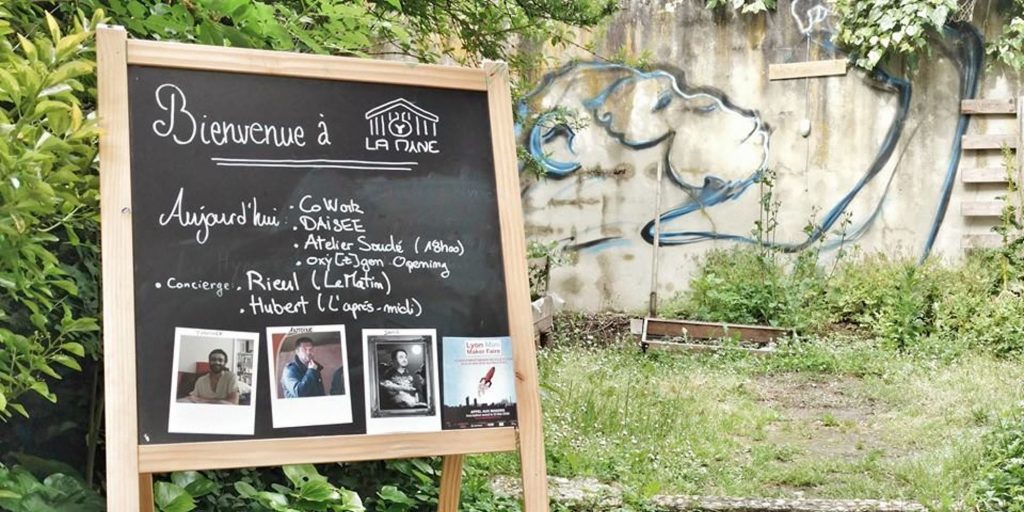 Bienvenue à
LA MYNE
Aujourd'hui : . CoWork
. DAISEE
. Atelier Soudé (18h00)
. oxy[t]gen Opening
• Concierge : . Rieul (Le Matin)
. Hubert (L'après-midi)
ANTOINE
Lyon Mini
Maker Faire
APPEL AUX MAKERS